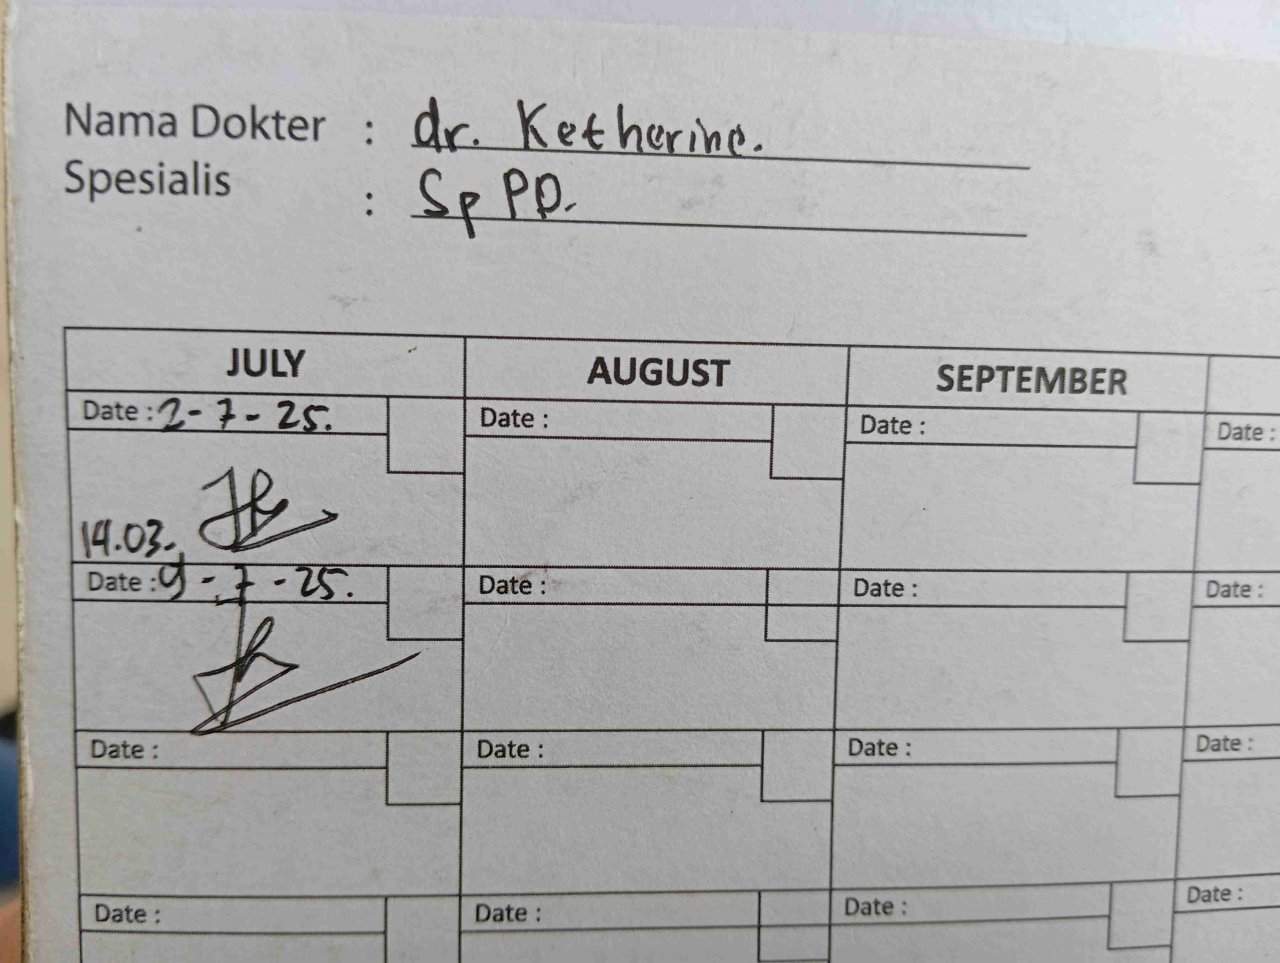 Nama Dokter : dr. Ketherine.
Spesialis : Sp PD.
JULY AUGUST SEPTEMBER
Date : 2-7-25. Date : Date : Date :
14.03.
Date : 9-7-25. Date : Date : Date :
Date : Date : Date : Date :
Date : Date : Date : Date :